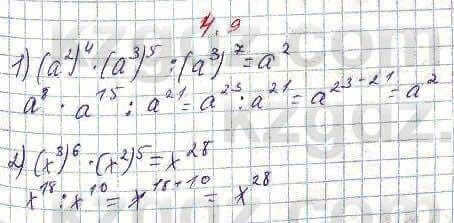 4.9
1) (a²)⁴ · (a³)⁵ : (a³)⁷ = a²
a⁸ · a¹⁵ : a²¹ = a²³ : a²¹ = a²³⁻²¹ = a²
2) (x³)⁶ · (x²)⁵ = x²⁸
x¹⁸ : x¹⁰ = x¹⁸⁺¹⁰ = x²⁸